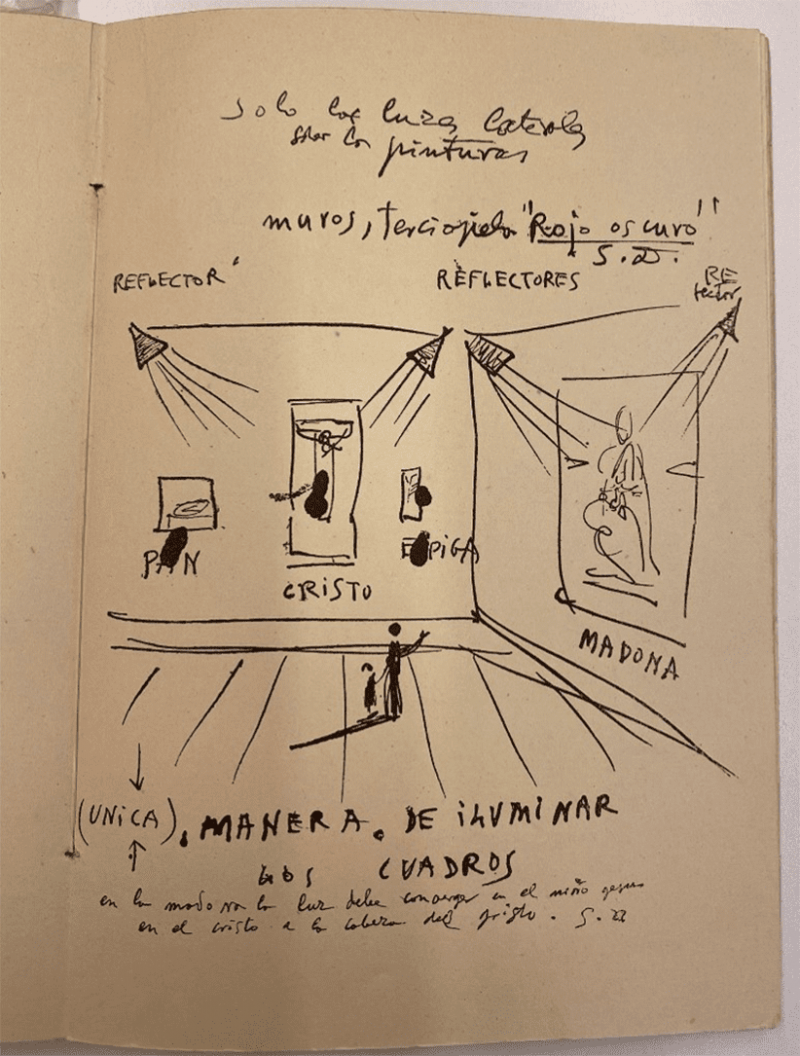 solo las luzes laterales
sobre las pinturas
muros, terciopelo "Rojo oscuro"
S.D.
REFLECTOR
REFLECTORES
RE
flector
PAN
CRISTO
ESPIGA
MADONA
(UNICA). MANERA. DE iLUMINAR
LOS CUADROS
en la madona la luz debe converger en el niño gesus
en el cristo a la cabeza del cristo. S. D